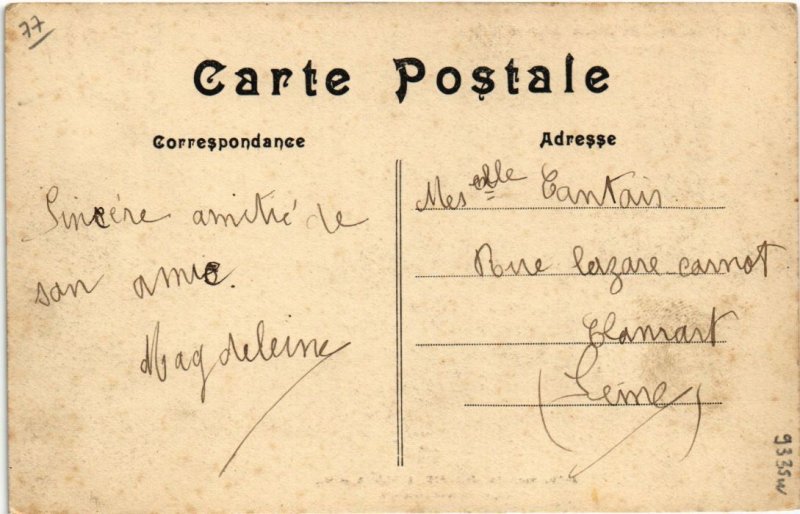 77
Carte Postale
Correspondance
Sincère amitié de
son amie.
Magdeleine
Adresse
Mes elle Tantain
Rue lazare carnot
Clamart
(Seine)
9335W